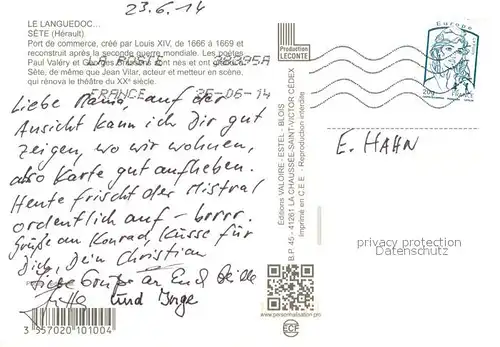 23.6.14
LE LANGUEDOC...
SÈTE (Hérault)
Port de commerce, créé par Louis XIV, de 1666 à 1669 et
reconstruit après la seconde guerre mondiale. Les poètes
Paul Valéry et Georges Brassens sont nés et ont grandi à
Sète, de même que Jean Vilar, acteur et metteur en scène,
qui rénova le théâtre du XXe siècle.
LA POSTE
FRANCE 25-06-14
Liebe Mama, auf der
Ansicht kann ich Dir gut
zeigen, wo wir wohnen,
also Karte gut aufheben.
Heute frischt der Mistral
ordentlich auf - brrrr.
Grüße an Konrad, Küsse für
Dich, Dein Christian
Liebe Grüße an Euch beide
und Inge
3 957020 101004
Production
LECONTE
Editions VALOIRE - ESTEL - BLOIS
B.P. 45 - 41261 LA CHAUSSÉE-SAINT-VICTOR CEDEX
Imprimé en C.E.E. - Reproduction interdite
www.personnalisation.pro
Europe
20g
E. HAHN
privacy protection
Datenschutz